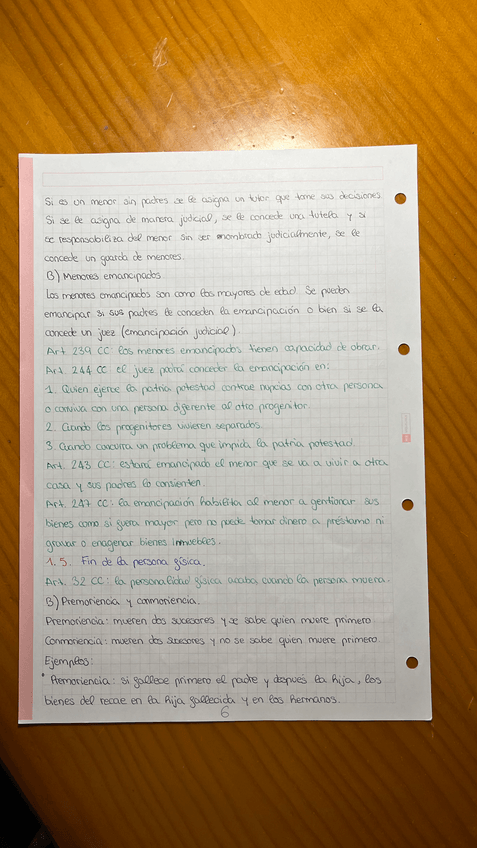 Si es un menor sin padres se le asigna un tutor que tome sus decisiones.
Si se le asigna de manera judicial, se le concede una tutela y si
se responsabiliza del menor sin ser nombrado judicialmente, se le
concede un guarda de menores.
B) Menores emancipados
Los menores emancipados son como los mayores de edad. Se pueden
emancipar si sus padres le conceden la emancipación o bien si se la
concede un juez (emancipación judicial).
Art. 239 CC los menores emancipados tienen capacidad de obrar.
Art. 244 CC el juez podrá conceder la emancipación en:
1. Quien ejerce la patria potestad contrae nupcias con otra persona
o conviva con una persona diferente al otro progenitor.
2. Cuando los progenitores vivieren separados.
3. Cuando concurra un problema que impida la patria potestad.
Art. 243 CC: estará emancipado el menor que se va a vivir a otra
casa y sus padres lo consienten.
Art. 247 CC: la emancipación habilita al menor a gentionar sus
bienes como si fuera mayor pero no puede tomar dinero a préstamo ni
gravar o enagenar bienes inmuebles.
1.5. Fin de la persona física.
Art. 32 CC: la personalidad física acaba cuando la persona muera.
B) Premoriencia y conmoriencia.
Premoriencia: mueren dos sucesores y se sabe quien muere primero.
Conmoriencia: mueren dos sucesores y no se sabe quien muere primero.
Ejemplos:
* Premoriencia: si fallece primero el padre y después la hija, los
bienes del recae en la hija fallecida y en los hermanos.
6